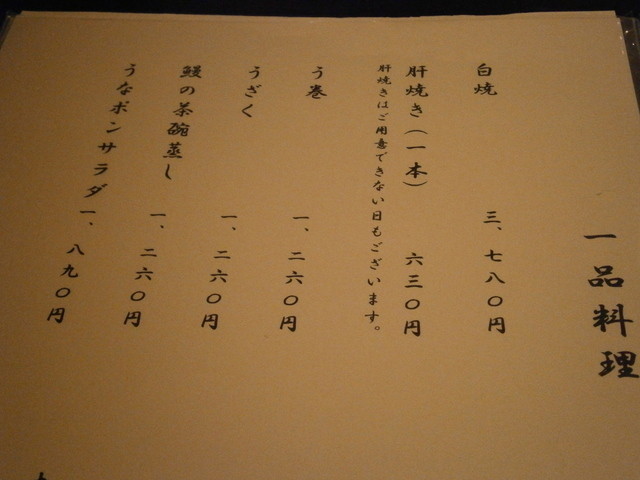 一品料理
白焼 三、七八〇円
肝焼き（一本） 六三〇円
肝焼きはご用意できない日もございます。
う巻 一、二六〇円
うざく 一、二六〇円
鰻の茶碗蒸し 一、二六〇円
うなポンサラダ 一、八九〇円